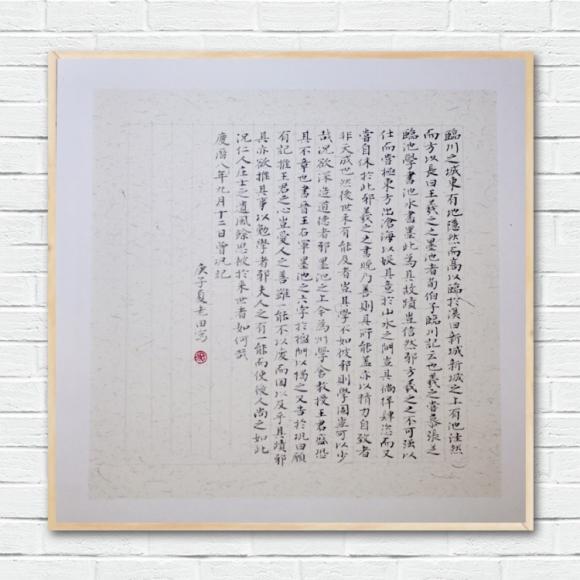 臨川之城東有地隱然而高以臨於溪曰新城新城之上有池洼然
而方以長曰王羲之之墨池者荀伯子臨川記云也羲之嘗慕張芝
臨池學書池水盡黑此為其故蹟豈信然邪方羲之之不可強以
仕而嘗極東方出滄海以娛其意於山水之間豈其徜徉肆恣而又
嘗自休於此邪羲之之書晚乃善則其所能蓋亦以精力自致者
非天成也然後世未有能及者豈其學不如彼邪則學固豈可以少
哉況欲深造道德者邪墨池之上今為州學舍教授王君盛恐
其不章也書晉王右軍墨池之六字於楹間以揭之又告於鞏曰願
有記推王君之心豈愛人之善雖一能不以廢而因以及乎其蹟邪
其亦欲推其事以勉學者邪夫人之有一能而使後人尚之如此
況仁人莊士之遺風餘思被於來世者如何哉
慶曆八年九月十二日曾鞏記
庚子夏老田寫